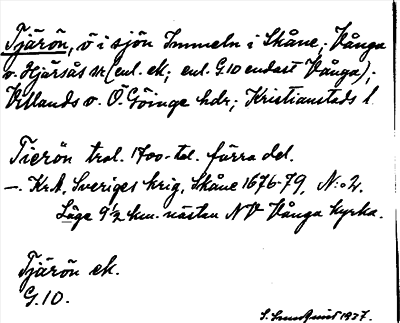 Tjärön, ö i sjön Immeln i Skåne; Vånga
o. Hjärsås sr (enl. ek; enl. G.10 endast Vånga);
Villands o. Ö. Göinge hdr; Kristianstads l.
Tierön trol. 1700-tal. förra del.
—. Kr.A. Sveriges krig, Skåne 1676-79, N:o 2.
Läge 9½ km. nästan NV Vånga kyrka.
Tjärön ek.
G.10.
1937.